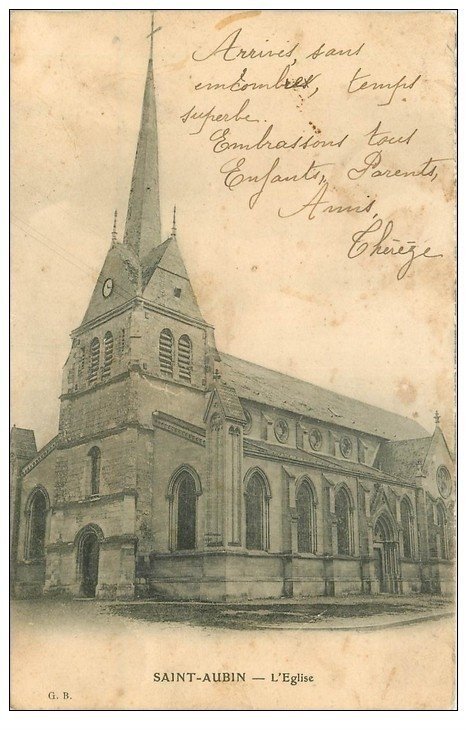 Arrivés, sans
encombres, temps
superbe.
Embrassons tous
Enfants, Parents,
Amis,
Thérèze
SAINT-AUBIN — L'Eglise
G. B.